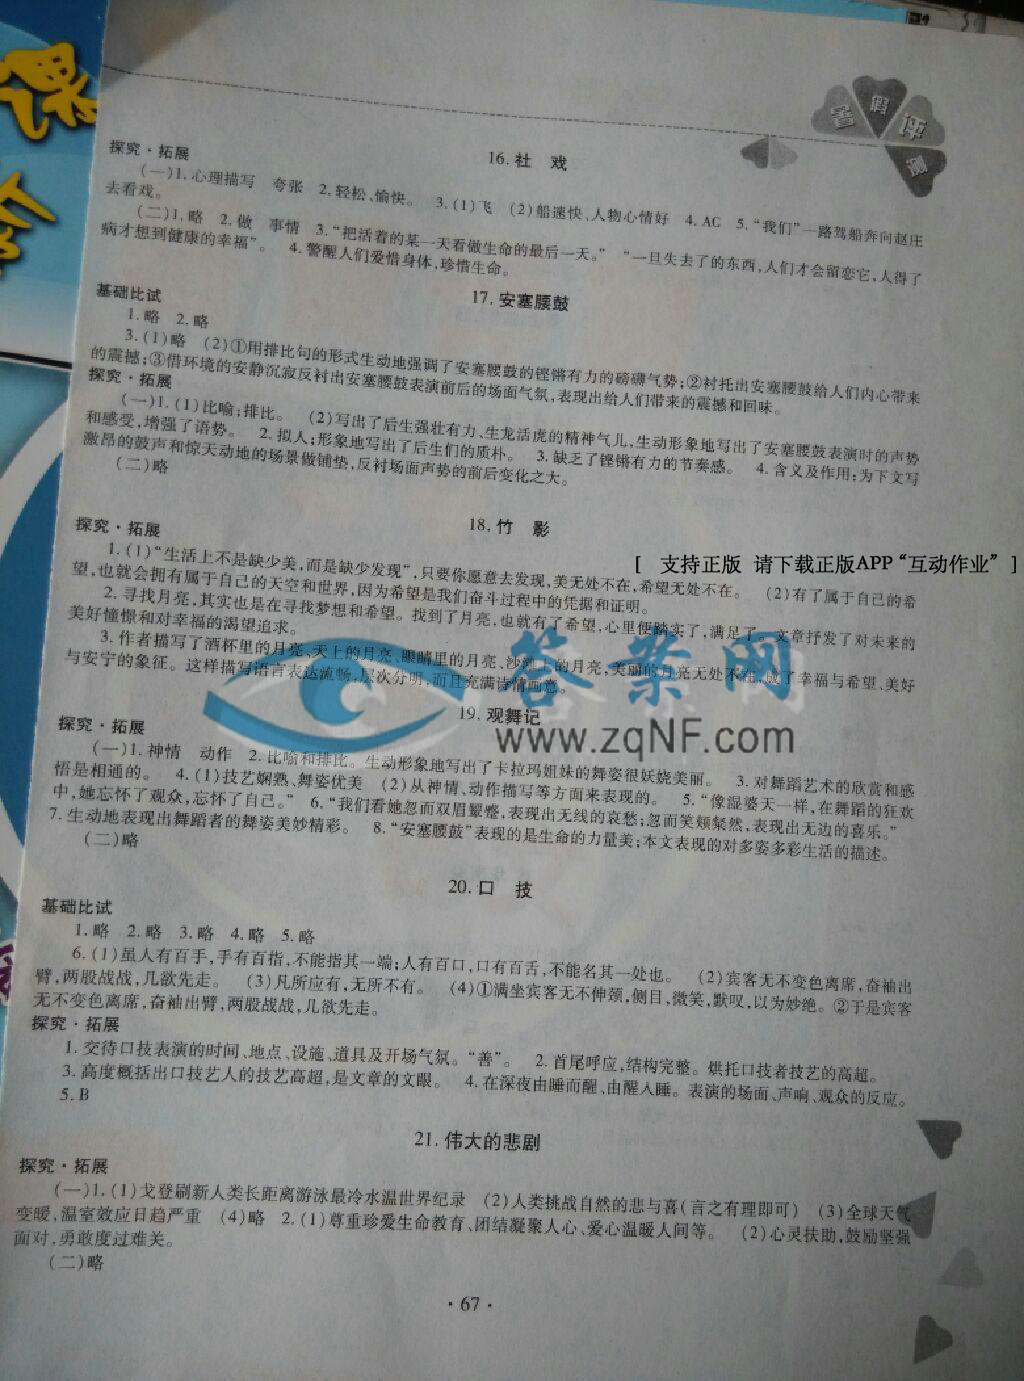 暑假评测
16.社 戏
探究·拓展
(一)1.心理描写 夸张 2.轻松、愉快。 3.(1)飞 (2)船速快,人物心情好 4.AC 5.“我们”一路驾船奔向赵庄
去看戏。
(二)1.略 2.做 事情 3.“把活着的某一天看做生命的最后一天。” “一旦失去了的东西,人们才会留恋它,人得了
病才想到健康的幸福”。 4.警醒人们爱惜身体,珍惜生命。
17.安塞腰鼓
基础比试
1.略 2.略
3.(1)略 (2)①用排比句的形式生动地强调了安塞腰鼓的铿锵有力的磅礴气势;②衬托出安塞腰鼓给人们内心带来
的震撼;③借环境的安静沉寂反衬出安塞腰鼓表演前后的场面气氛,表现出给人们带来的震撼和回味。
探究·拓展
(一)1.(1)比喻;排比。 (2)写出了后生强壮有力、生龙活虎的精神气儿,生动形象地写出了安塞腰鼓表演时的声势
和感受,增强了语势。 2.拟人;形象地写出了后生们的质朴。 3.缺乏了铿锵有力的节奏感。 4.含义及作用:为下文写
激昂的鼓声和惊天动地的场景做铺垫,反衬场面声势的前后变化之大。
(二)略
18.竹 影
探究·拓展
1.(1)“生活上不是缺少美,而是缺少发现”,只要你愿意去发现,美无处不在,希望无处不在。 (2)有了属于自己的希
望,也就会拥有属于自己的天空和世界,因为希望是我们奋斗过程中的凭据和证明。
2.寻找月亮,其实也是在寻找梦想和希望。找到了月亮,也就有了希望,心里便踏实了,满足了。文章抒发了对未来的
美好憧憬和对幸福的渴望追求。
3.作者描写了酒杯里的月亮、天上的月亮、眼睛里的月亮、沙滩上的月亮,美丽的月亮无处不在,成了幸福与希望、美好
与安宁的象征。这样描写语言表达流畅,层次分明,而且充满诗情画意。
19.观舞记
探究·拓展
(一)1.神情 动作 2.比喻和排比。生动形象地写出了卡拉玛姐妹的舞姿很妖娆美丽。 3.对舞蹈艺术的欣赏和感
悟是相通的。 4.(1)技艺娴熟、舞姿优美 (2)从神情、动作描写等方面来表现的。 5.“像湿婆天一样,在舞蹈的狂欢
中,她忘怀了观众,忘怀了自己。” 6.“我们看她忽而双眉颦蹙,表现出无线的哀愁;忽而笑颊粲然,表现出无边的喜乐。”
7.生动地表现出舞蹈者的舞姿美妙精彩。 8.“安塞腰鼓”表现的是生命的力量美;本文表现的对多姿多彩生活的描述。
(二)略
20.口 技
基础比试
1.略 2.略 3.略 4.略 5.略
6.(1)虽人有百手,手有百指,不能指其一端;人有百口,口有百舌,不能名其一处也。 (2)宾客无不变色离席,奋袖出
臂,两股战战,几欲先走。 (3)凡所应有,无所不有。 (4)①满坐宾客无不伸颈,侧目,微笑,默叹,以为妙绝。②于是宾客
无不变色离席,奋袖出臂,两股战战,几欲先走。
探究·拓展
1.交待口技表演的时间、地点、设施、道具及开场气氛。“善”。 2.首尾呼应,结构完整。烘托口技者技艺的高超。
3.高度概括出口技艺人的技艺高超,是文章的文眼。 4.在深夜由睡而醒、由醒入睡。表演的场面、声响、观众的反应。
5.B
21.伟大的悲剧
探究·拓展
(一)1.(1)戈登刷新人类长距离游泳最冷水温世界纪录 (2)人类挑战自然的悲与喜(言之有理即可) (3)全球天气
变暖,温室效应日趋严重 (4)略 2.(1)尊重珍爱生命教育、团结凝聚人心、爱心温暖人间等。 (2)心灵扶助,鼓励坚强
面对,勇敢度过难关。
(二)略
·67·
[ 支持正版 请下载正版APP“互动作业” ]
答案网
www.zqNF.com